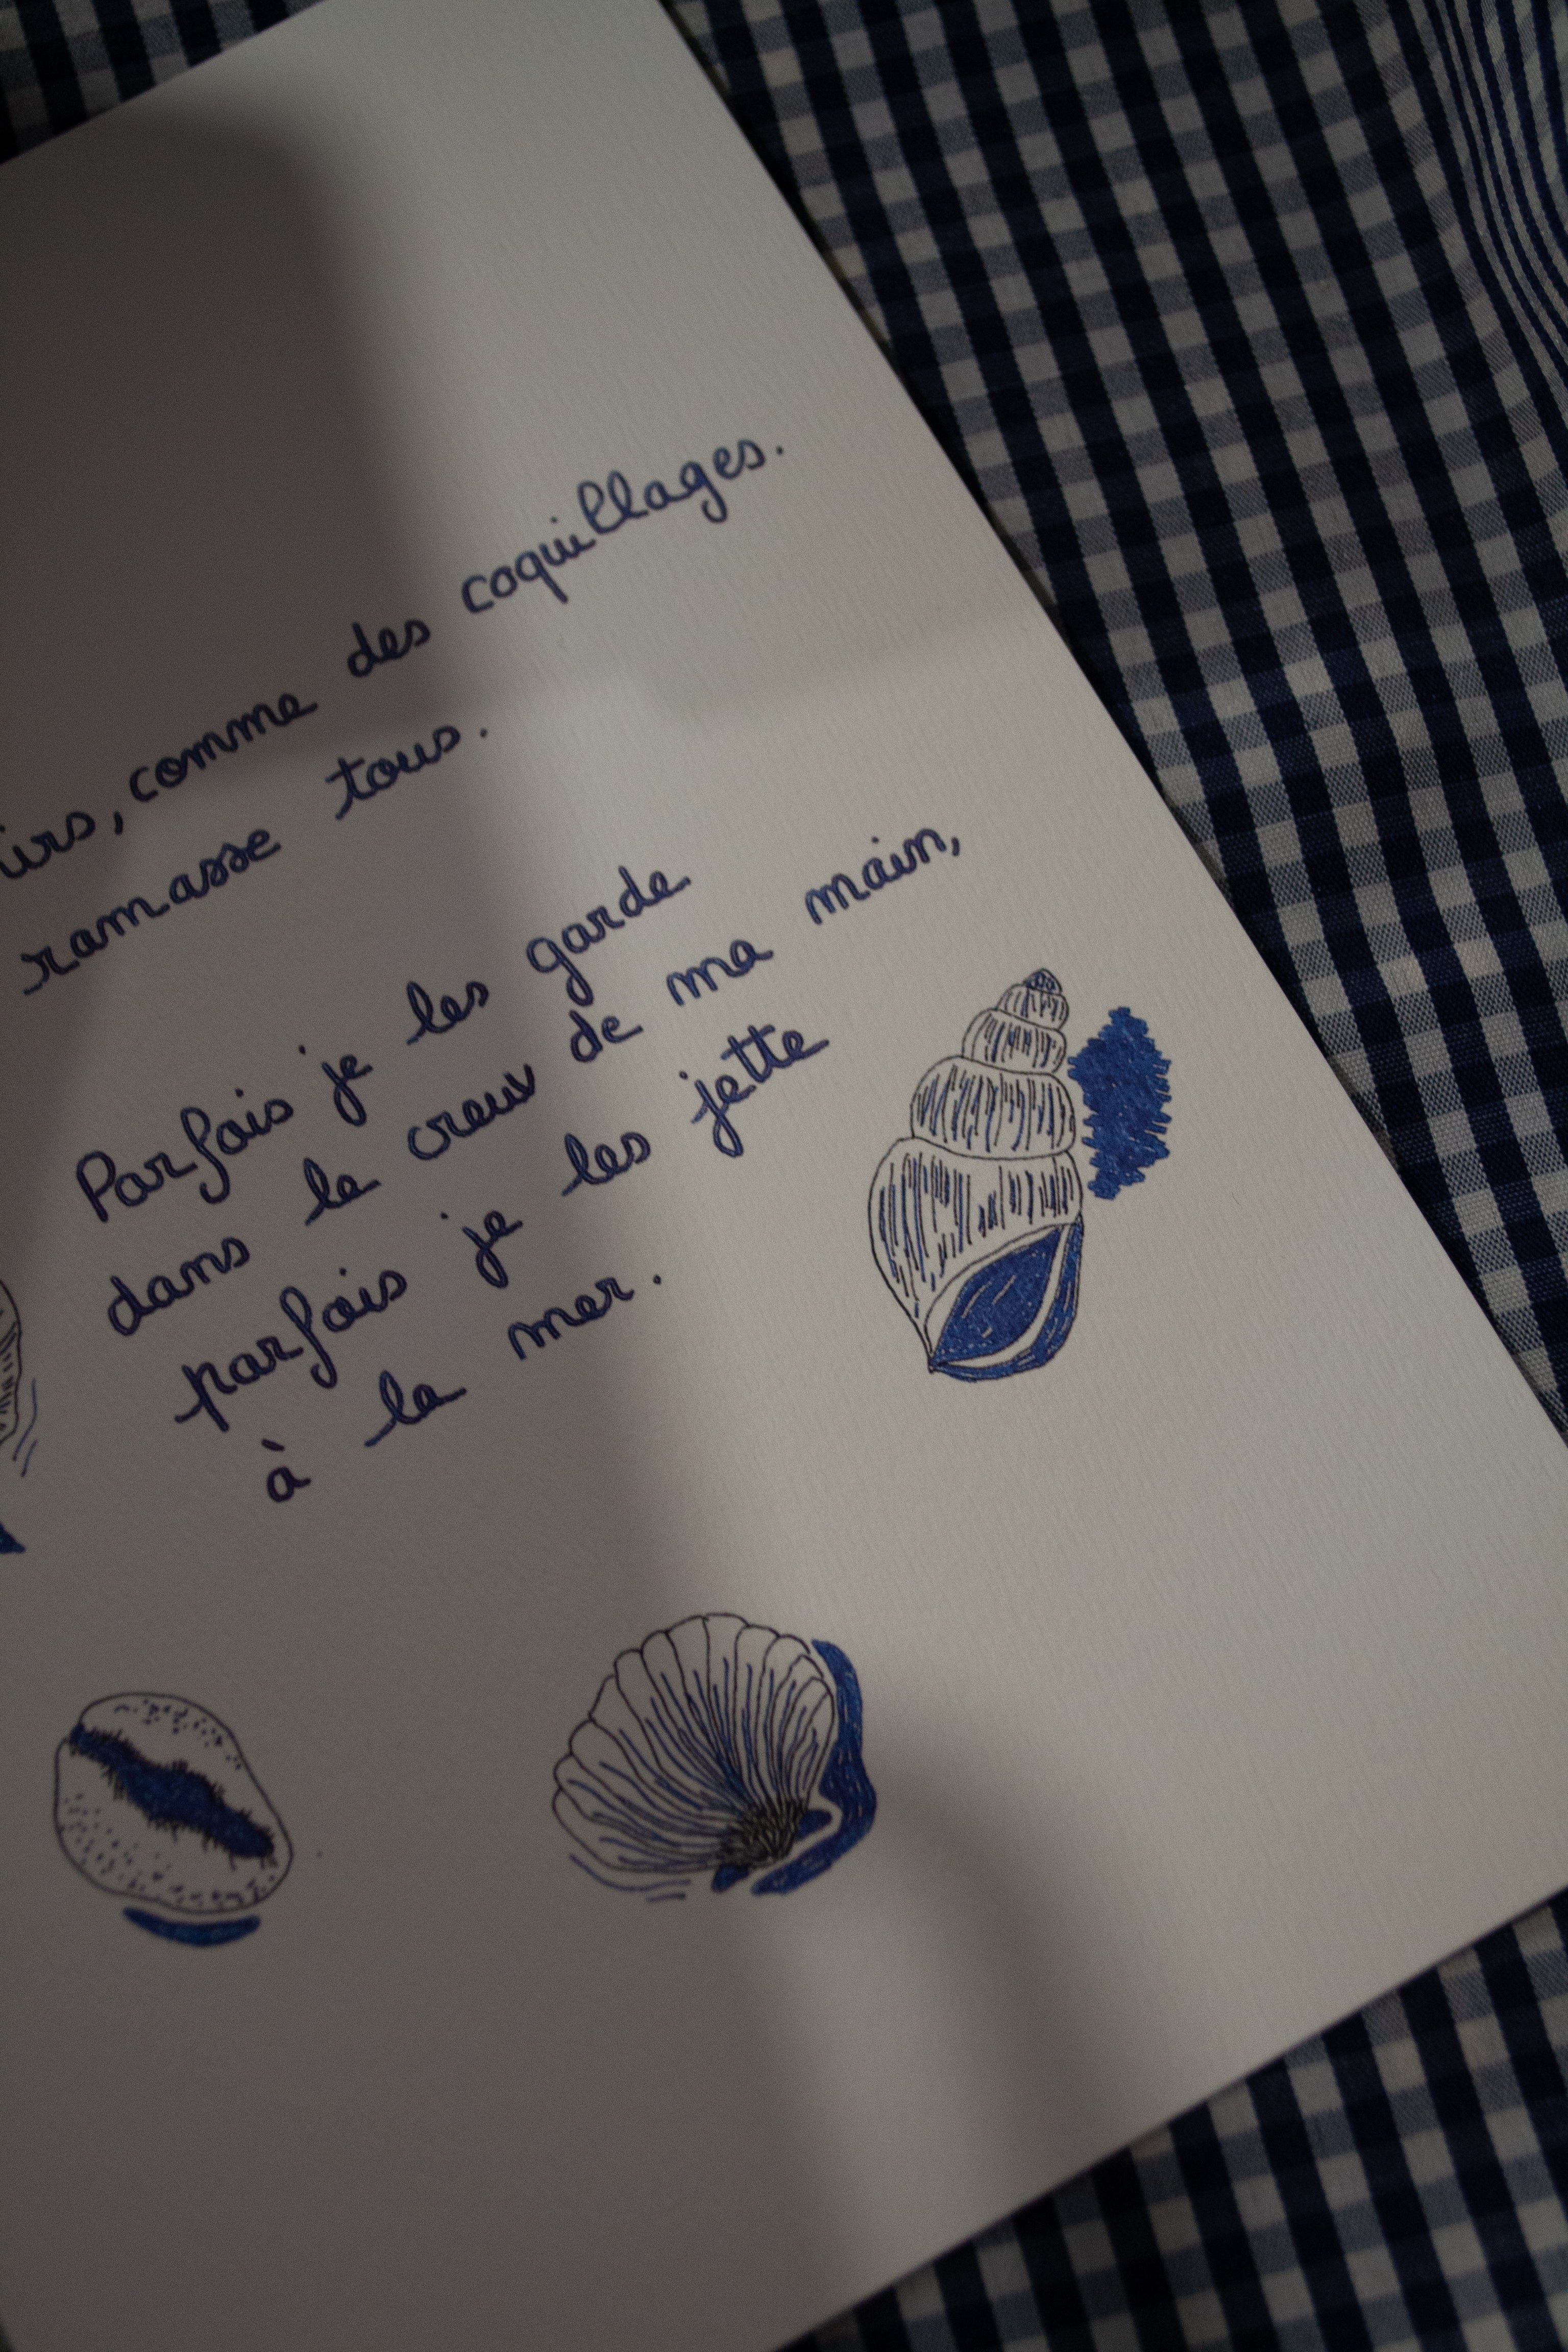 irs, comme des coquillages.
ramasse tous.
Parfois je les garde
dans le creux de ma main,
parfois je les jette
à la mer.